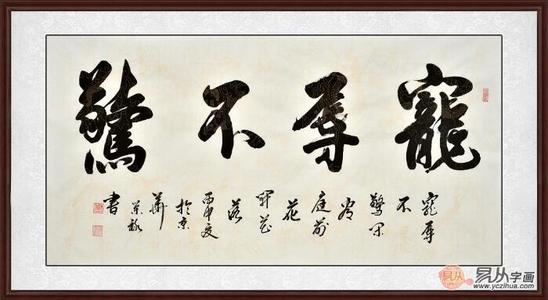 寵辱不驚
寵辱
不
驚閒
看
庭前
花
開花
落
丙申夏
於京
華
書
易从字画
www.yczihua.com